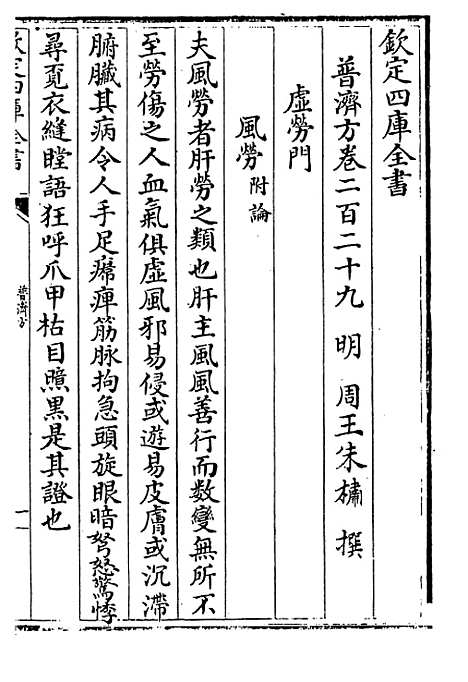 欽定四庫全書
普濟方卷二百二十九 明 周王朱橚 撰
虛勞門
風勞附論
夫風勞者肝勞之類也肝主風風善行而数變無所不
至勞傷之人血氣俱虛風邪易侵或遊易皮膚或沉滯
腑臟其病令人手足㿏痺筋脉拘急頭旋眼暗弩怒驚悸
尋覔衣縫瞠語狂呼爪甲枯目黶黒是其證也
欽定四庫全書
普濟方
一